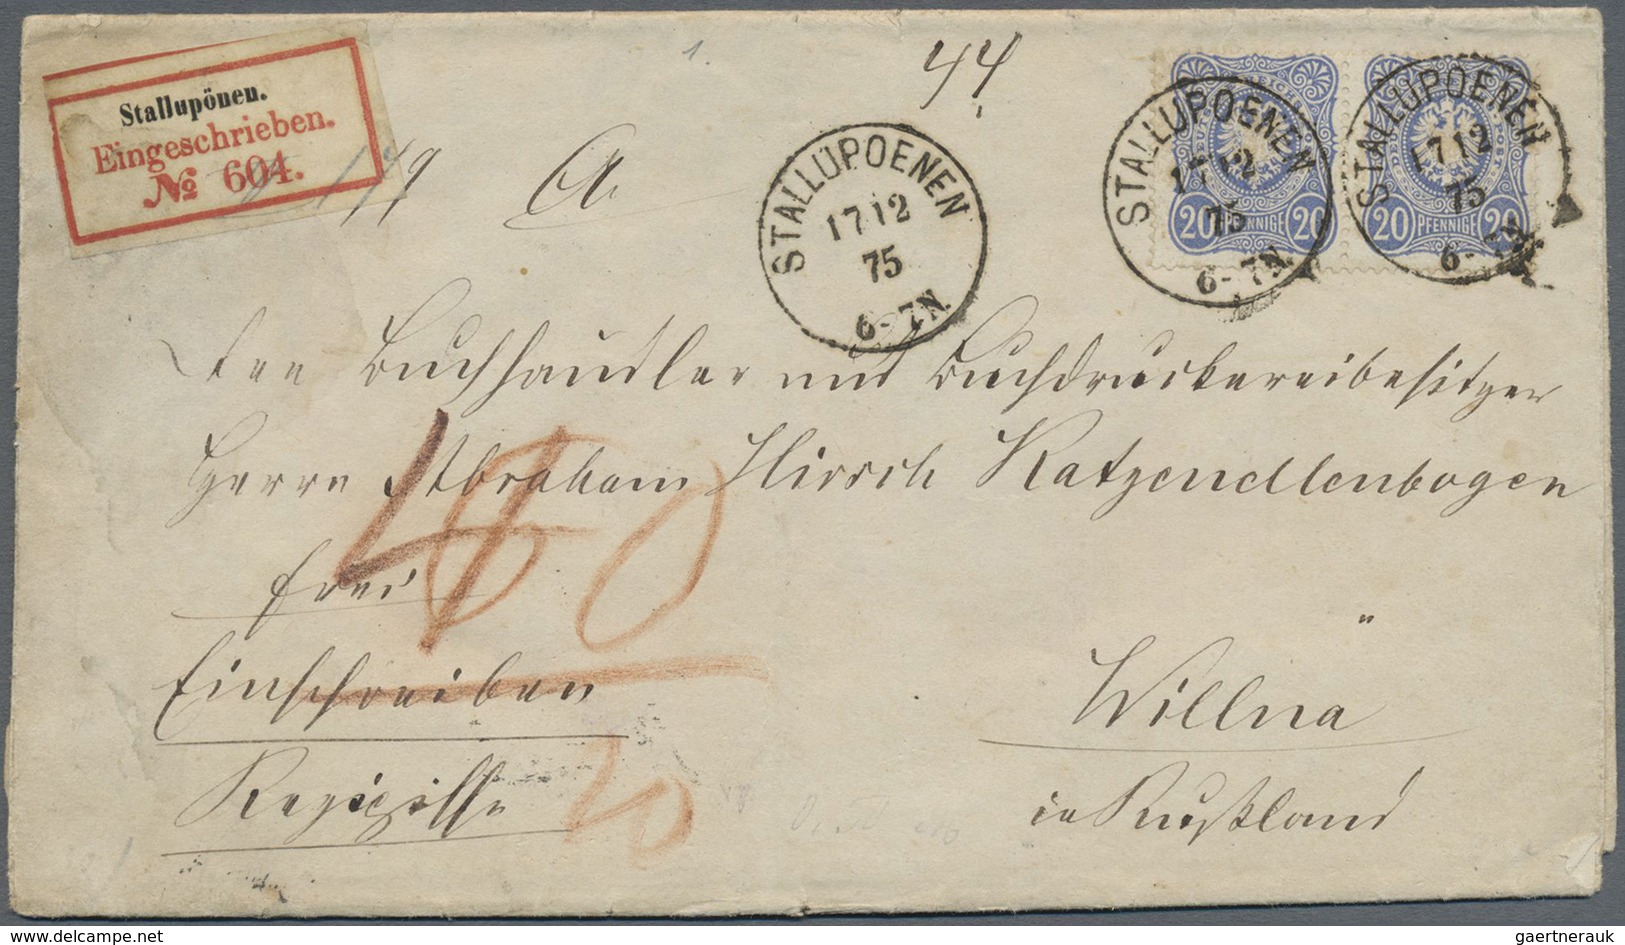 Stallupönen.
Eingeschrieben.
№ 604.
1.
44
179
A.
STALLUPOENEN
17 12
75
6-7N.
STALLUPOENEN
17 12
75
6-7N.
STALLUPOENEN
17 12
75
6-
20 PFENNIGE 20
20 PFENNIGE 20
Den Buchhändler und Buchdruckereibesitzer
Herrn Abraham Hirsch Katzenellenbogen
frei
40
Einschreiben
Willna
20
in Rußland
delcampe.net
gaertnerauk